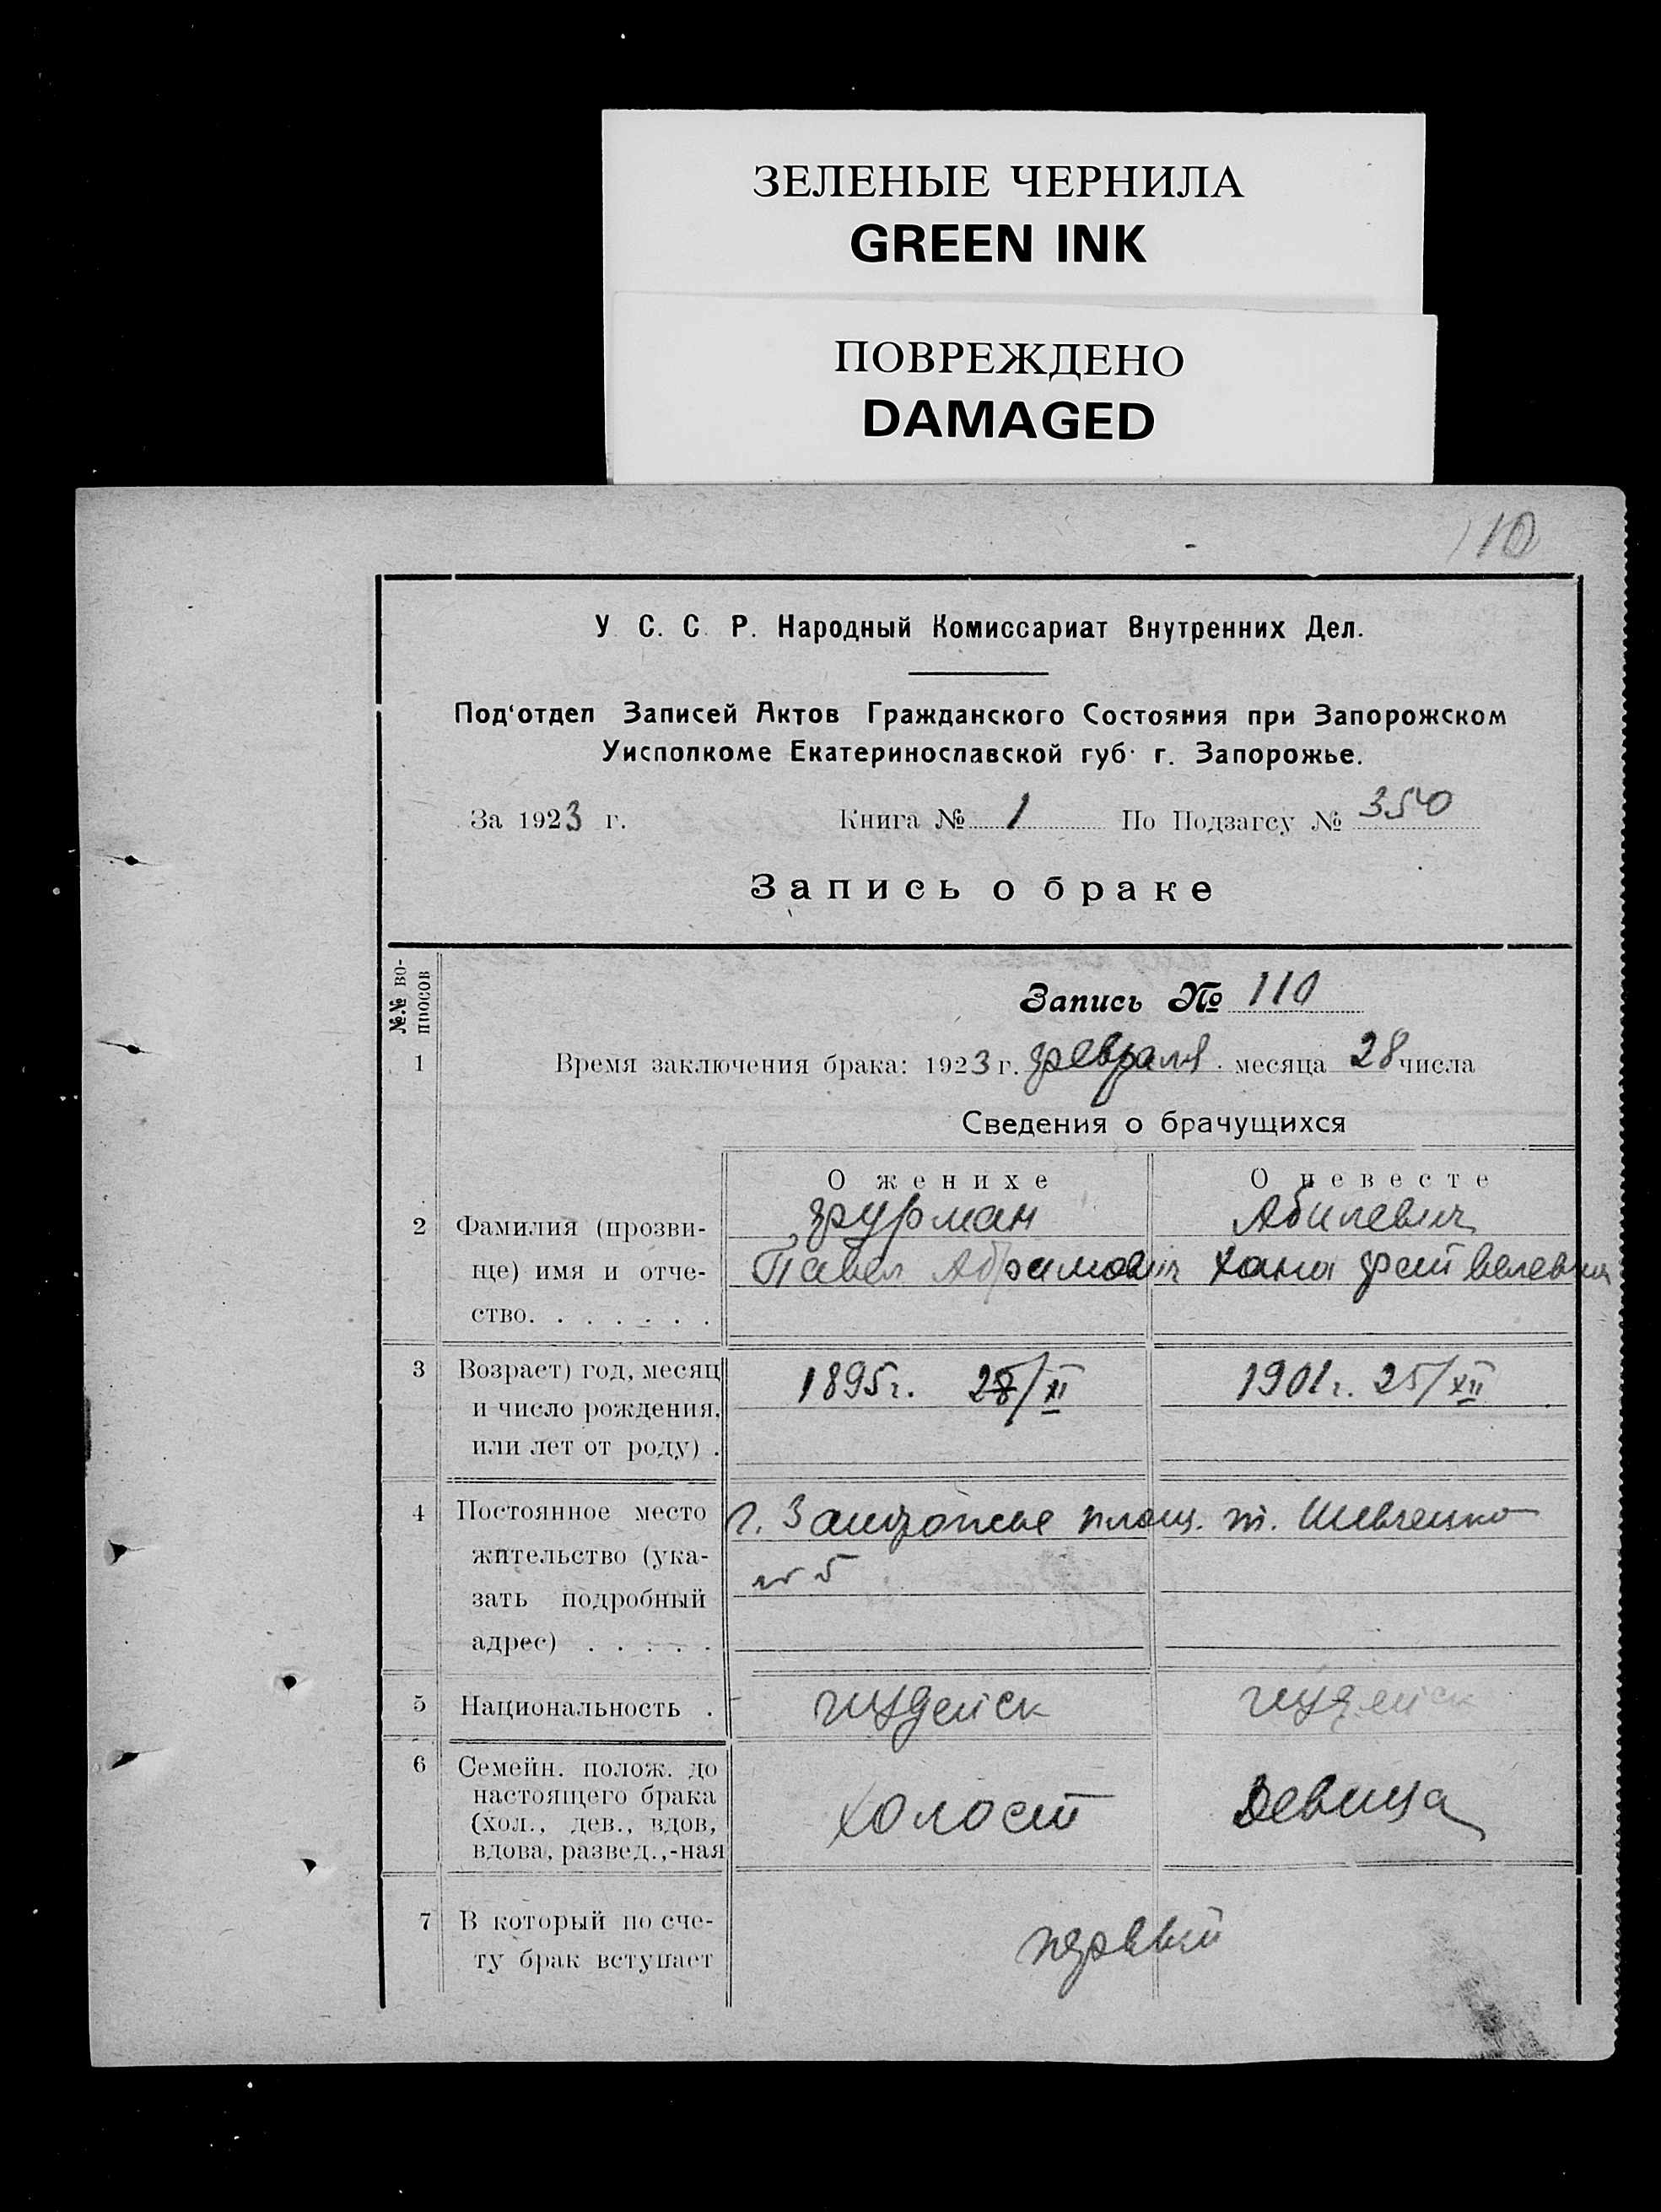 ЗЕЛЕНЫЕ ЧЕРНИЛА
GREEN INK
ПОВРЕЖДЕНО
DAMAGED
110
У. С. С. Р. Народный Комиссариат Внутренних Дел.
Под‘отдел Записей Актов Гражданского Состояния при Запорожском
Уисполкоме Екатеринославской губ. г. Запорожье.
За 1923 г. Книга № 1 По Подзагсу № 350
Запись о браке
№№ во-
просов
Запись № 110
1 Время заключения брака: 1923 г. февраля месяца 28 числа
Сведения о брачущихся
О женихе О невесте
2 Фамилия (прозви- Фурман Абилевич
ще) имя и отче- Павел Абрамович Хана Фейвелевна
ство. . . . . . .
3 Возраст) год, месяц 1895 г. 28/XI 1901 г. 25/XII
и число рождения,
или лет от роду) .
4 Постоянное место г. Запорожье площ. т. Шевченко
жительство (ука- № 5
зать подробный
адрес) . . . . .
5 Национальность . иудейск иудейск
6 Семейн. полож. до
настоящего брака
(хол., дев., вдов, холост девица
вдова, развед.,-ная
7 В который по сче- первый
ту брак вступает